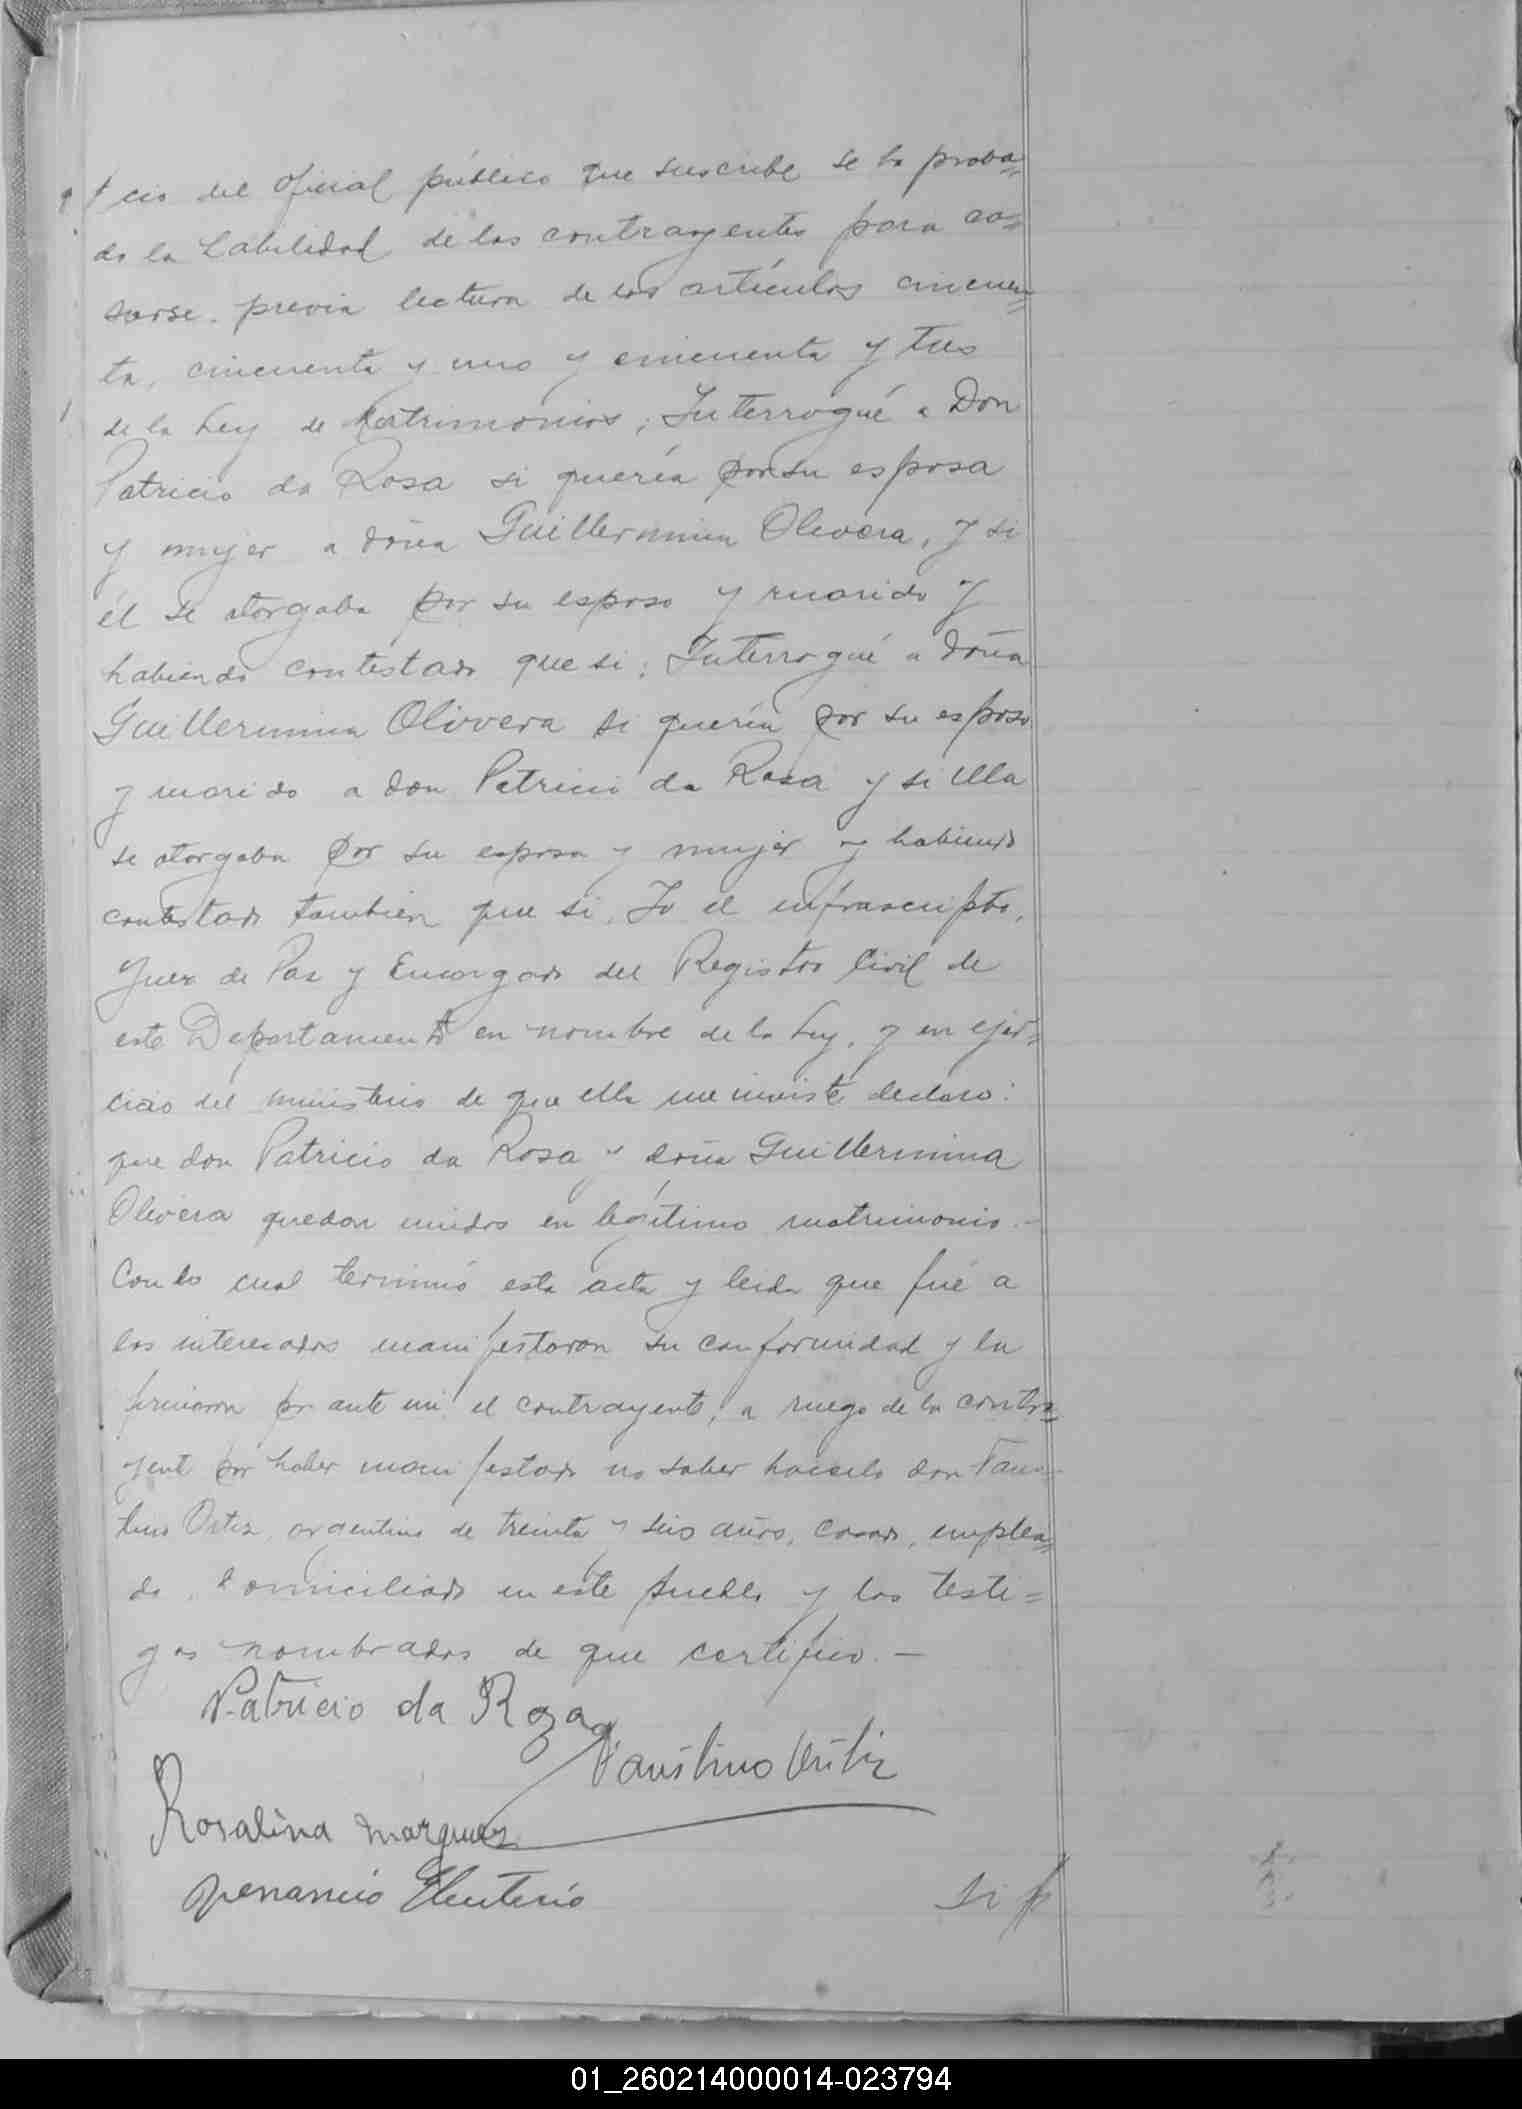 cio del oficial público que suscribe se ha proba=
do la habilidad de los contrayentes para ca=
sarse. previa lectura de los artículos cincuen=
ta, cincuenta y uno y cincuenta y tres
de la Ley de Matrimonios; Interrogué a Don
Patricio da Rosa si quería por su esposa
y mujer a doña Guillermina Olivera, y si
él se otorgaba por su esposo y marido y
habiendo contestado que si; Interrogué a doña
Guillermina Olivera si quería por su esposo
y marido a don Patricio da Rosa y si ella
se otorgaba por su esposa y mujer y habiendo
contestado tambien que si, Yo el infrascripto,
Juez de Paz y Encargado del Registro Civil de
este Departamento en nombre de la Ley, y en ejer=
cicio del ministerio de que ella me inviste declaro:
que don Patricio da Rosa y doña Guillermina
Olivera quedan unidos en legítimo matrimonio.-
Con lo cual terminó esta acta y leida que fué a
los interesados manifestaron su conformidad y la
firmaron por ante mi el contrayente, a ruego de la contra=
yente por haber manifestado no saber hacerlo don Faus-
tino Ortiz, argentino de treinta y seis años, casado, emplea=
do, domiciliado en este pueblo y los testi=
gos nombrados de que certifico.—
Patricio da Roza
Faustino Ortiz
Rosalina Marquez
Venancio Eleuterio
01_260214000014-023794